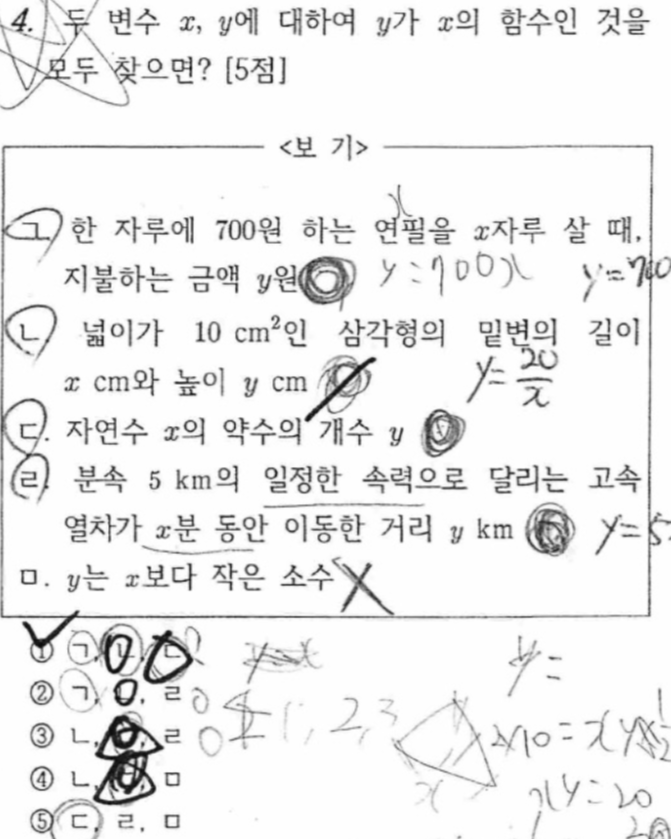 4. 두 변수 x, y에 대하여 y가 x의 함수인 것을
모두 찾으면? [5점]
<보 기>
ㄱ. 한 자루에 700원 하는 연필을 x자루 살 때,
지불하는 금액 y원 y=700x y=700
ㄴ. 넓이가 10 cm²인 삼각형의 밑변의 길이
x cm와 높이 y cm y=20/x
ㄷ. 자연수 x의 약수의 개수 y
ㄹ. 분속 5 km의 일정한 속력으로 달리는 고속
열차가 x분 동안 이동한 거리 y km y=5
ㅁ. y는 x보다 작은 소수
① ㄱ, ㄴ, ㄷ y=
② ㄱ, ㄹ
③ ㄴ, ㄹ
④ ㄴ, ㅁ
⑤ ㄷ, ㄹ, ㅁ
xy=20